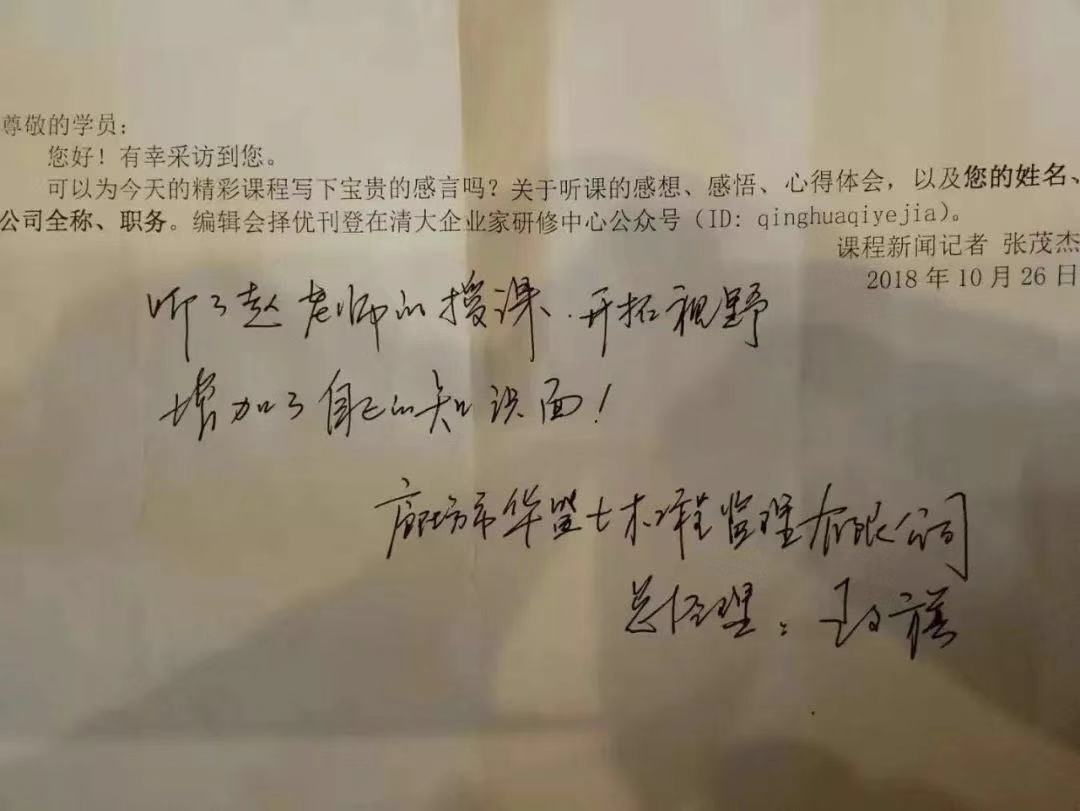 尊敬的学员：
您好！有幸采访到您。
可以为今天的精彩课程写下宝贵的感言吗？关于听课的感想、感悟、心得体会，以及您的姓名、
公司全称、职务。编辑会择优刊登在清大企业家研修中心公众号（ID: qinghuaqiyejia）。
课程新闻记者 张茂杰
2018 年 10 月 26 日
听了赵老师的授课.开拓视野
增加了自己的知识面！
廊坊市华 土木工程监理有限公司
总经理：